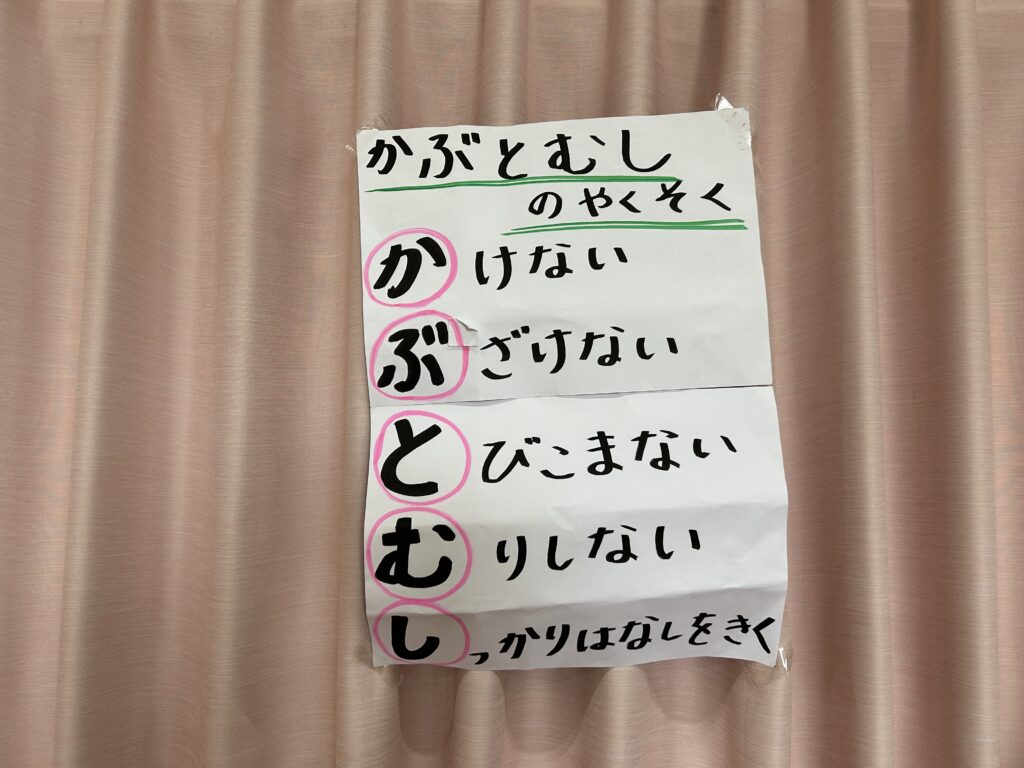 かぶとむし
のやくそく
かけない
ぶざけない
とびこまない
むりしない
しっかりはなしをきく